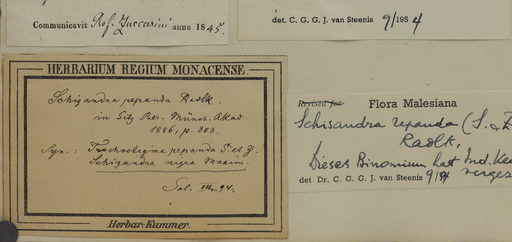 Communicavit Prof. Zuccarini anno 1845
det. C. G. G. J. van Steenis 9/1984
HERBARIUM REGIUM MONACENSE.
Schizandra repanda Radlk.
in Sitz. Ber. Münch. Akad.
1886, p. 303.
Syn.: Trochostigma repanda S. et Z.
Schizandra nigra Maxim.
Sol. III. 94.
Herbar. Kummer.
Revised for Flora Malesiana
Schisandra repanda (S. & Z
Radlk.
Dieses Binomium hat Ind. Kew
verges
det Dr. C. G. G. J. van Steenis 9/84